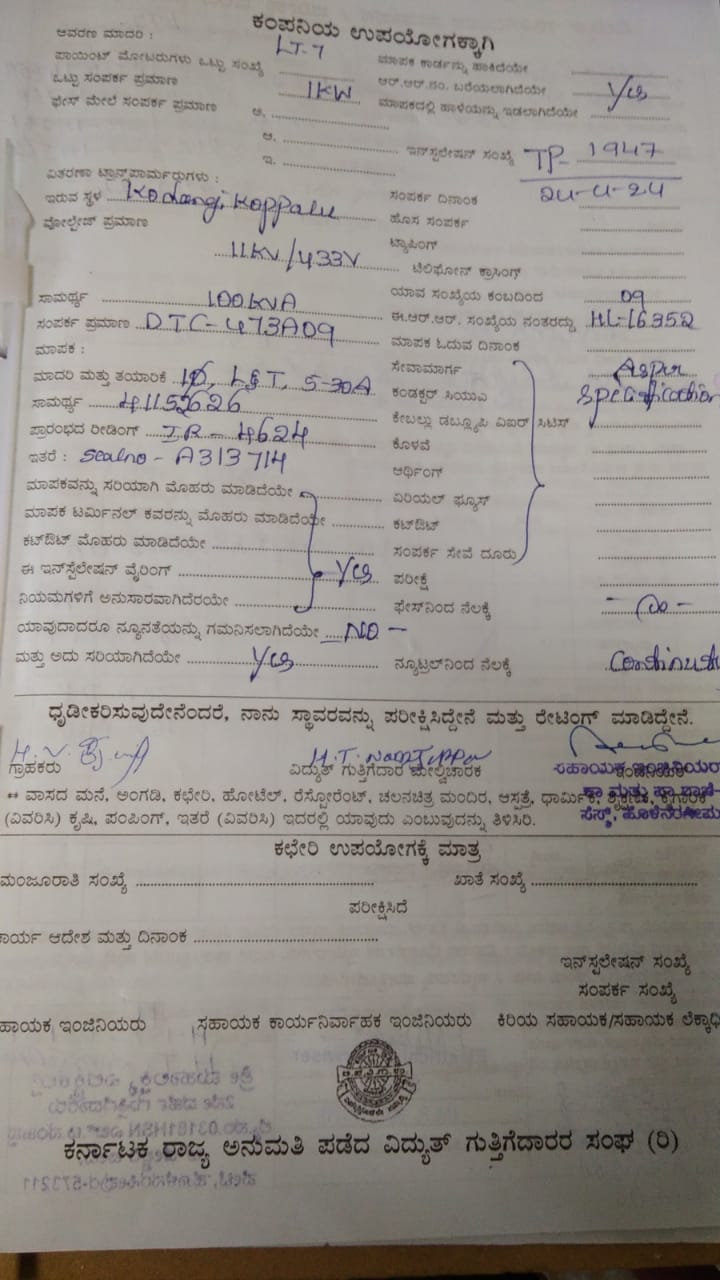 ಕಂಪನಿಯ ಉಪಯೋಗಕ್ಕಾಗಿ
ಆವರಣ ಮಾದರಿ : LT-7 ಮಾಪಕ ಕಾರ್ಡನ್ನು ಹಾಕಿದೆಯೇ
ಪಾಯಿಂಟ್ ಮೋಟರುಗಳು ಒಟ್ಟು ಸಂಖ್ಯೆ ಆರ್.ಆರ್.ನಂ. ಬರೆಯಲಾಗಿದೆಯೇ Yes
ಒಟ್ಟು ಸಂಪರ್ಕ ಪ್ರಮಾಣ 1KW ಮಾಪಕದಲ್ಲಿ ಹಾಳೆಯನ್ನು ಇಡಲಾಗಿದೆಯೇ
ಫೇಸ್ ಮೇಲೆ ಸಂಪರ್ಕ ಪ್ರಮಾಣ ಅ.
ಆ. ಇನ್‌ಸ್ಟಲೇಷನ್ ಸಂಖ್ಯೆ TP- 1947
ಇ.
ವಿತರಣಾ ಟ್ರಾನ್ಸ್‌ಫಾರ್ಮರುಗಳು : 24-4-24
ಇರುವ ಸ್ಥಳ Kodangi Koppalu ಸಂಪರ್ಕ ದಿನಾಂಕ
ವೋಲ್ಟೇಜ್ ಪ್ರಮಾಣ ಹೊಸ ಸಂಪರ್ಕ
11KV/433V ಟ್ಯಾಪಿಂಗ್
ಟೆಲಿಫೋನ್ ಕ್ರಾಸಿಂಗ್
ಸಾಮರ್ಥ್ಯ 100KVA ಯಾವ ಸಂಖ್ಯೆಯ ಕಂಬದಿಂದ 09
ಸಂಪರ್ಕ ಪ್ರಮಾಣ DTC-473A09 ಈ.ಆರ್.ಆರ್. ಸಂಖ್ಯೆಯ ನಂತರದ್ದು HL-16352
ಮಾಪಕ : ಮಾಪಕ ಓದುವ ದಿನಾಂಕ
ಮಾದರಿ ಮತ್ತು ತಯಾರಿಕೆ 1Ø, L&T, 5-30A ಸೇವಾಮಾರ್ಗ As per
ಸಾಮರ್ಥ್ಯ 41152626 ಕಂಡಕ್ಟರ್ ಸಿಯುಎ specification
ಪ್ರಾರಂಭದ ರೀಡಿಂಗ್ IR-4624 ಕೇಬಲ್ಲು ಡಬ್ಲ್ಯೂಪಿ ವಿಐಆರ್ ಸಿಟಿಎಸ್
ಇತರೆ : Seal no - A313714 ಕೊಳವೆ
ಮಾಪಕವನ್ನು ಸರಿಯಾಗಿ ಮೊಹರು ಮಾಡಿದೆಯೇ ಆರ್ಥಿಂಗ್
ಮಾಪಕ ಟರ್ಮಿನಲ್ ಕವರನ್ನು ಮೊಹರು ಮಾಡಿದೆಯೇ ಏರಿಯಲ್ ಫ್ಯೂಸ್
ಕಟ್‌ಔಟ್ ಮೊಹರು ಮಾಡಿದೆಯೇ ಕಟ್‌ಔಟ್
ಸಂಪರ್ಕ ಸೇವೆ ದೂರು
ಈ ಇನ್‌ಸ್ಟಲೇಷನ್ ವೈರಿಂಗ್ Yes ಪರೀಕ್ಷೆ
ನಿಯಮಗಳಿಗೆ ಅನುಸಾರವಾಗಿದೆರಯೇ ಫೇಸ್‌ನಿಂದ ನೆಲಕ್ಕೆ
ಯಾವುದಾದರೂ ನ್ಯೂನತೆಯನ್ನು ಗಮನಿಸಲಾಗಿದೆಯೇ NO -
ಮತ್ತು ಅದು ಸರಿಯಾಗಿದೆಯೇ Yes ನ್ಯೂಟ್ರಲ್‌ನಿಂದ ನೆಲಕ್ಕೆ
ಧೃಡೀಕರಿಸುವುದೇನೆಂದರೆ, ನಾನು ಸ್ಥಾವರವನ್ನು ಪರೀಕ್ಷಿಸಿದ್ದೇನೆ ಮತ್ತು ರೇಟಿಂಗ್ ಮಾಡಿದ್ದೇನೆ.
ಗ್ರಾಹಕರು ವಿದ್ಯುತ್ ಗುತ್ತಿಗೆದಾರ ಮೇಲ್ವಿಚಾರಕ ಸಹಾಯಕ ಇಂಜಿನಿಯರ
** ವಾಸದ ಮನೆ, ಅಂಗಡಿ, ಕಛೇರಿ, ಹೋಟೆಲ್, ರೆಸ್ಟೋರೆಂಟ್, ಚಲನಚಿತ್ರ ಮಂದಿರ, ಆಸ್ಪತ್ರೆ, ಧಾರ್ಮಿಕ,
(ವಿವರಿಸಿ) ಕೃಷಿ, ಪಂಪಿಂಗ್, ಇತರೆ (ವಿವರಿಸಿ) ಇದರಲ್ಲಿ ಯಾವುದು ಎಂಬುವುದನ್ನು ತಿಳಿಸಿರಿ.
ಕಛೇರಿ ಉಪಯೋಗಕ್ಕೆ ಮಾತ್ರ
ಮಂಜೂರಾತಿ ಸಂಖ್ಯೆ ಖಾತೆ ಸಂಖ್ಯೆ
ಪರೀಕ್ಷಿಸಿದೆ
ಕಾರ್ಯ ಆದೇಶ ಮತ್ತು ದಿನಾಂಕ
ಇನ್‌ಸ್ಟಲೇಷನ್ ಸಂಖ್ಯೆ
ಸಂಪರ್ಕ ಸಂಖ್ಯೆ
ಹಾಯಕ ಇಂಜಿನಿಯರು ಸಹಾಯಕ ಕಾರ್ಯನಿರ್ವಾಹಕ ಇಂಜಿನಿಯರು ಕಿರಿಯ ಸಹಾಯಕ/ಸಹಾಯಕ ಲೆಕ್ಕಾಧಿ
ಕರ್ನಾಟಕ ರಾಜ್ಯ ಅನುಮತಿ ಪಡೆದ ವಿದ್ಯುತ್ ಗುತ್ತಿಗೆದಾರರ ಸಂಘ (ರಿ)